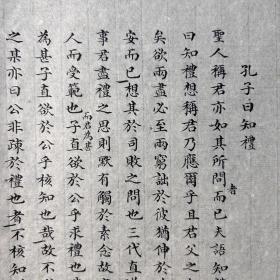 孔子曰知禮
聖人稱君亦如其所問者而已夫語知
曰知禮想稱君乃應爾乎且君父之
矣欲兩盡必至兩窮詘於彼猶伸於
安而已想其於司敗之問也三代直
事君盡禮之思則默有觸於素念故
人而受範也而君為甚子直欲於公乎求禮也
為甚子直欲於公乎核知也哉故不
之某亦曰公非疎於禮也者不核知